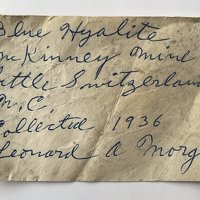 Blue Hyalite
McKinney Mine
Little Switzerland
N.C.
Collected 1936
Leonard A Morg